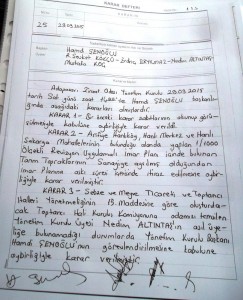 KARAR DEFTERİ
25
28.03.2015
Hamdi ŞENOĞLU
R. Sevket KOÇOĞLU - Erdinç ERYILMAZ - Nedim ALTINTAŞ
Mustafa KOÇ
Adapazarı Ziraat Odası Yönetim Kurulu 28.03.2015
tarihli Salı günü saat 11,00'de Hamdi ŞENOĞLU başkanlı-
ğında aşağıdaki kararları almıştır.
KARAR 1 - Bir önceki karar zabıtlarının okunup görü-
şülmesine kabulüne oybirliğiyle karar verildi.
KARAR 2 - Arifiye Hanlıköy Halı Merkez ve Hanlı
Sakarya Mahallelerinin bulunduğu alanda yapılan 1/1000
Ölçekli Revizyon Uygulamalı İmar Planı içinde bulunan
Tarım Topraklarının Sanayiye açılmış olduğundan
İmar Planına askı süresi içinde itiraz edilmesine oybir-
liğiyle karar verilmiştir.
KARAR 3 - Sebze ve Meyve Ticareti ve Toptancı
Halleri Yönetmeliğinin 19. Maddesine göre oluşturula-
cak Toptancı Hali Kurulu Komisyonuna odamızı temsilen
Yönetim Kurulu Üyesi Nedim ALTINTAŞ'ın asil üye-
liğe bulunamadığı durumlarda Yönetim Kurulu Başkanı
Hamdi ŞENOĞLU'nun görevlendirilmesine kabulüne
oybirliğiyle karar verilmiştir.